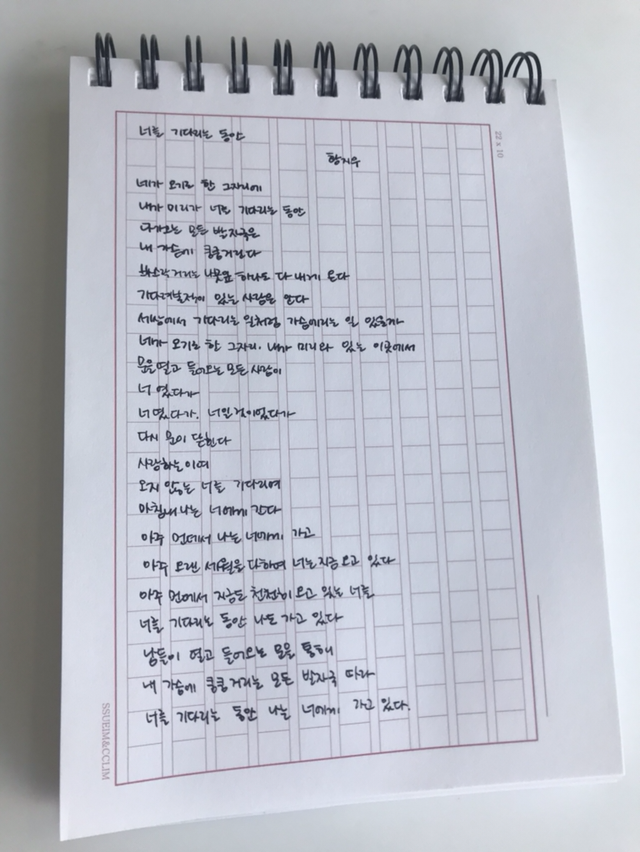 너를 기다리는 동안
황지우
네가 오기로 한 그자리에
내가 미리가 너를 기다리는 동안
다가오는 모든 발자국은
내 가슴에 쿵쿵거린다
바스락거리는 나뭇잎 하나도 다 내게 온다
기다려본적이 있는 사람은 안다
세상에서 기다리는 일처럼 가슴에리는 일 있을까
네가 오기로 한 그자리, 내가 미리와 있는 이곳에서
문을 열고 들어오는 모든 사람이
너였다가
너였다가, 너일것이었다가
다시 문이 닫힌다
사랑하는이여
오지 않는 너를 기다리며
마침내 나는 너에게 간다
아주 먼데서 나는 너에게 가고
아주 오랜 세월을 다하여 너는 지금 오고 있다
아주 먼데서 지금도 천천히 오고 있는 너를
너를 기다리는 동안 나도 가고 있다
남들이 열고 들어오는 문을 통해
내 가슴에 쿵쿵거리는 모든 발자국 따라
너를 기다리는 동안 나는 너에게 가고 있다.
22 x 10
SSUEIM&CCLIM